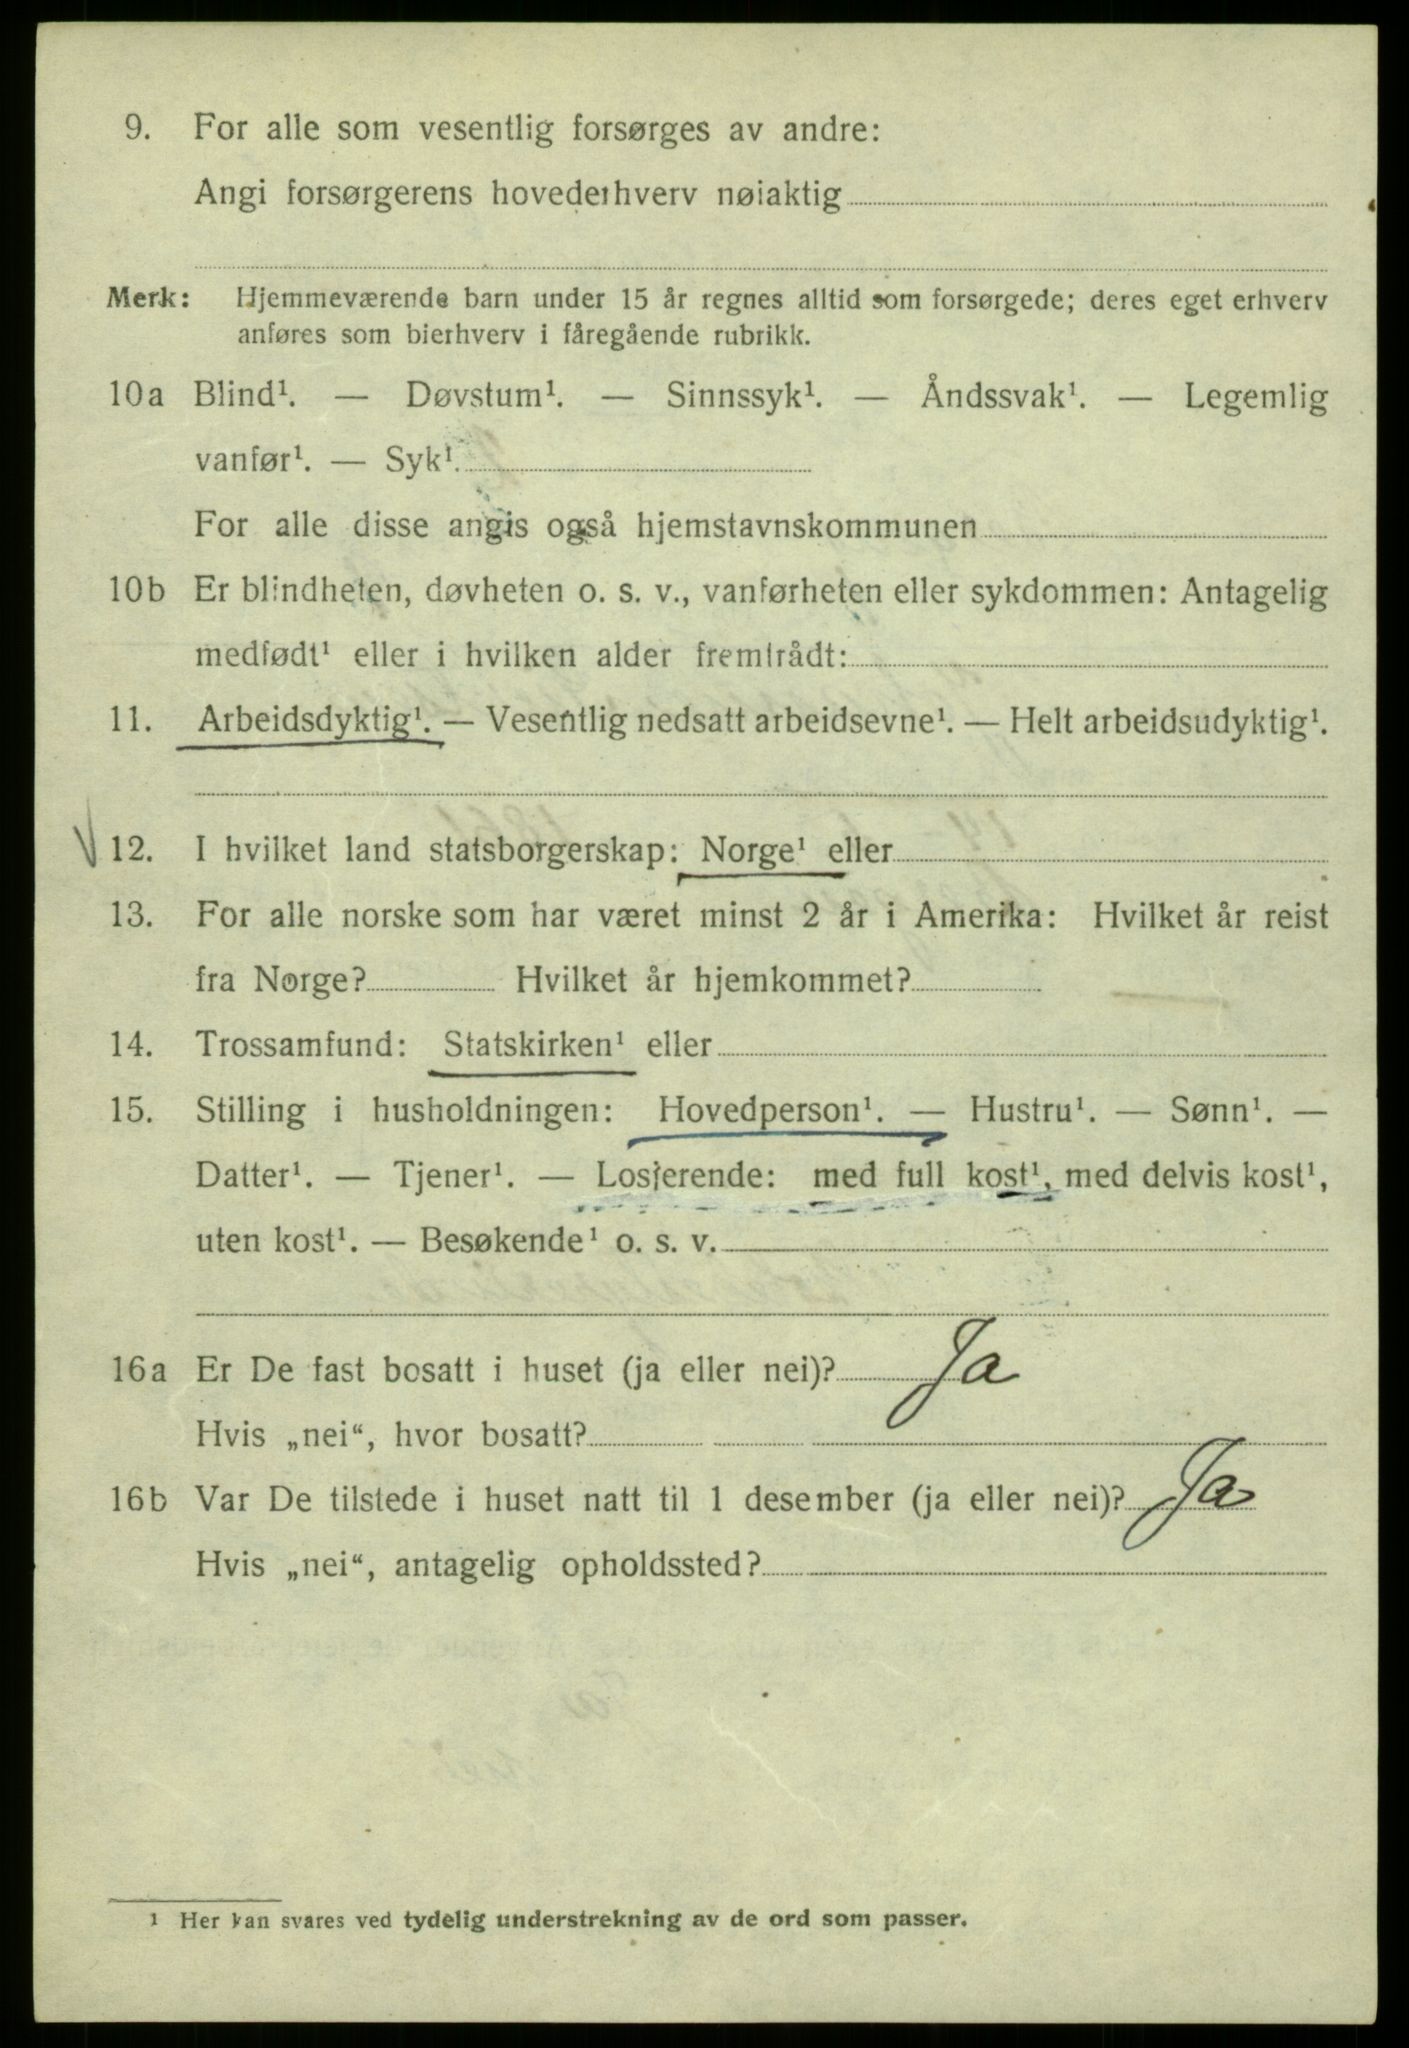 9. For alle som vesentlig forsørges av andre:
Angi forsørgerens hovederhverv nøiaktig
Merk: Hjemmeværende barn under 15 år regnes alltid som forsørgede; deres eget erhverv
anføres som bierhverv i fåregående rubrikk.
10a Blind¹. — Døvstum¹. — Sinnssyk¹. — Åndssvak¹. — Legemlig
vanfør¹. — Syk¹.
For alle disse angis også hjemstavnskommunen
10b Er blindheten, døvheten o. s. v., vanførheten eller sykdommen: Antagelig
medfødt¹ eller i hvilken alder fremtrådt:
11. Arbeidsdyktig¹. — Vesentlig nedsatt arbeidsevne¹. — Helt arbeidsudyktig¹.
12. I hvilket land statsborgerskap: Norge¹ eller
13. For alle norske som har været minst 2 år i Amerika: Hvilket år reist
fra Norge? Hvilket år hjemkommet?
14. Trossamfund: Statskirken¹ eller
15. Stilling i husholdningen: Hovedperson¹. — Hustru¹. — Sønn¹. —
Datter¹. — Tjener¹. — Losjerende: med full kost¹, med delvis kost¹,
uten kost¹. — Besøkende¹ o. s. v.
16a Er De fast bosatt i huset (ja eller nei)? Ja
Hvis „nei“, hvor bosatt?
16b Var De tilstede i huset natt til 1 desember (ja eller nei)? Ja
Hvis „nei“, antagelig opholdssted?
¹ Her kan svares ved tydelig understrekning av de ord som passer.